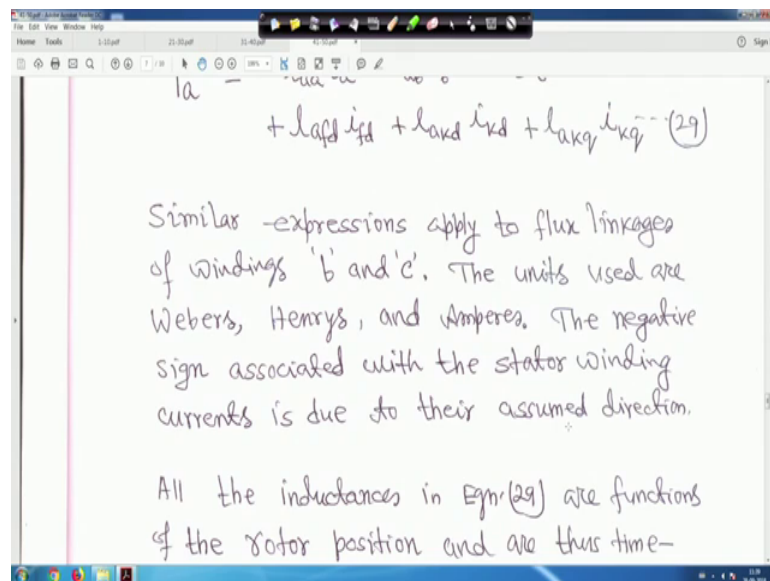 41-50.pdf - Adobe Acrobat Reader DC
File Edit View Window Help
Home Tools 1-10.pdf 21-30.pdf 31-40.pdf 41-50.pdf × Sign
+ lafd ifd + lakd ikd + lakq ikq ---- (29)
Similar expressions apply to flux linkages
of windings 'b' and 'c'. The units used are
Webers, Henrys, and Amperes. The negative
sign associated with the stator winding
currents is due to their assumed direction.
All the inductances in Eqn.(29) are functions
of the rotor position and are thus time-